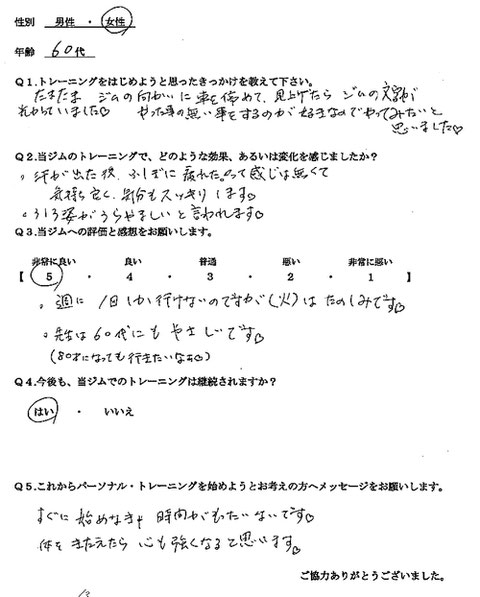 性別 男性 ・ 女性
年齢 60代
Q1.トレーニングをはじめようと思ったきっかけを教えて下さい。
たまたま ジムの向かいに車を停めて、見上げたら ジムの文字が
光っていました♡ やった事の無い事をするのが好きなのでやってみたいと
思いました♡
Q2.当ジムのトレーニングで、どのような効果、あるいは変化を感じましたか?
。汗が出た後、ふしぎに疲れたぁって感じは無くて
気持ち良く、気分もスッキリします♡
。うしろ姿がうらやましいと言われます♡
Q3.当ジムへの評価と感想をお願いします。
非常に良い 良い 普通 悪い 非常に悪い
【 5 ・ 4 ・ 3 ・ 2 ・ 1 】
。週に1日しか行けないのですが(火)はたのしみです♡
。先生は60代にもやさしいです♡
(80才になっても行きたいなぁ♡)
Q4.今後も、当ジムでのトレーニングは継続されますか?
はい ・ いいえ
Q5.これからパーソナル・トレーニングを始めようとお考えの方へメッセージをお願いします。
すぐに始めなきゃ 時間がもったいないです♡
体をきたえたら 心も強くなると思います♡
ご協力ありがとうございました。